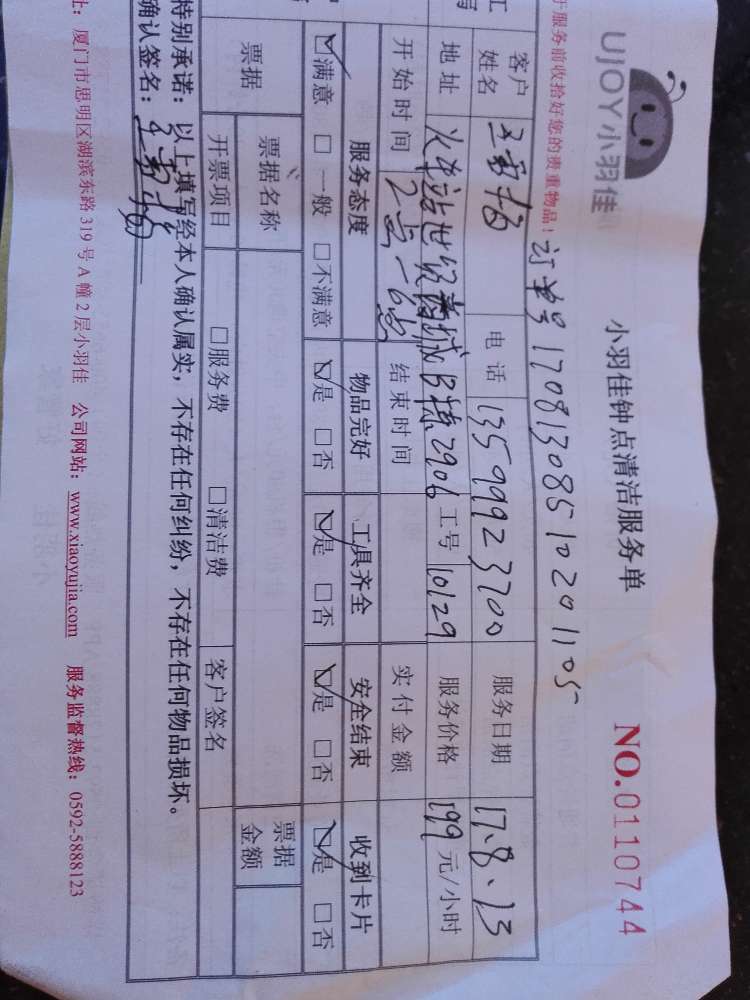 UJOY小羽佳
小羽佳钟点清洁服务单
NO.0110744
于服务前收拾好您的贵重物品！ 订单号 17081308510201105
客户姓名 电话 13599923700 服务日期 17.8.13
地址 火车站世纪嘉城B栋2906 工号 10129 服务价格 199 元/小时
开始时间 2点-6点 结束时间 实付金额
服务态度 物品完好 工具齐全 安全结束 收到卡片
☑满意 □一般 □不满意 ☑是 □否 ☑是 □否 ☑是 □否 ☑是 □否
票据 票据名称 票据金额
开票项目 □服务费 □清洁费 客户签名
特别承诺：以上填写经本人确认属实，不存在任何纠纷，不存在任何物品损坏。
确认签名：
址：厦门市思明区湖滨东路 319 号 A 幢 2 层小羽佳 公司网站：www.xiaoyujia.com 服务监督热线：0592-5888123